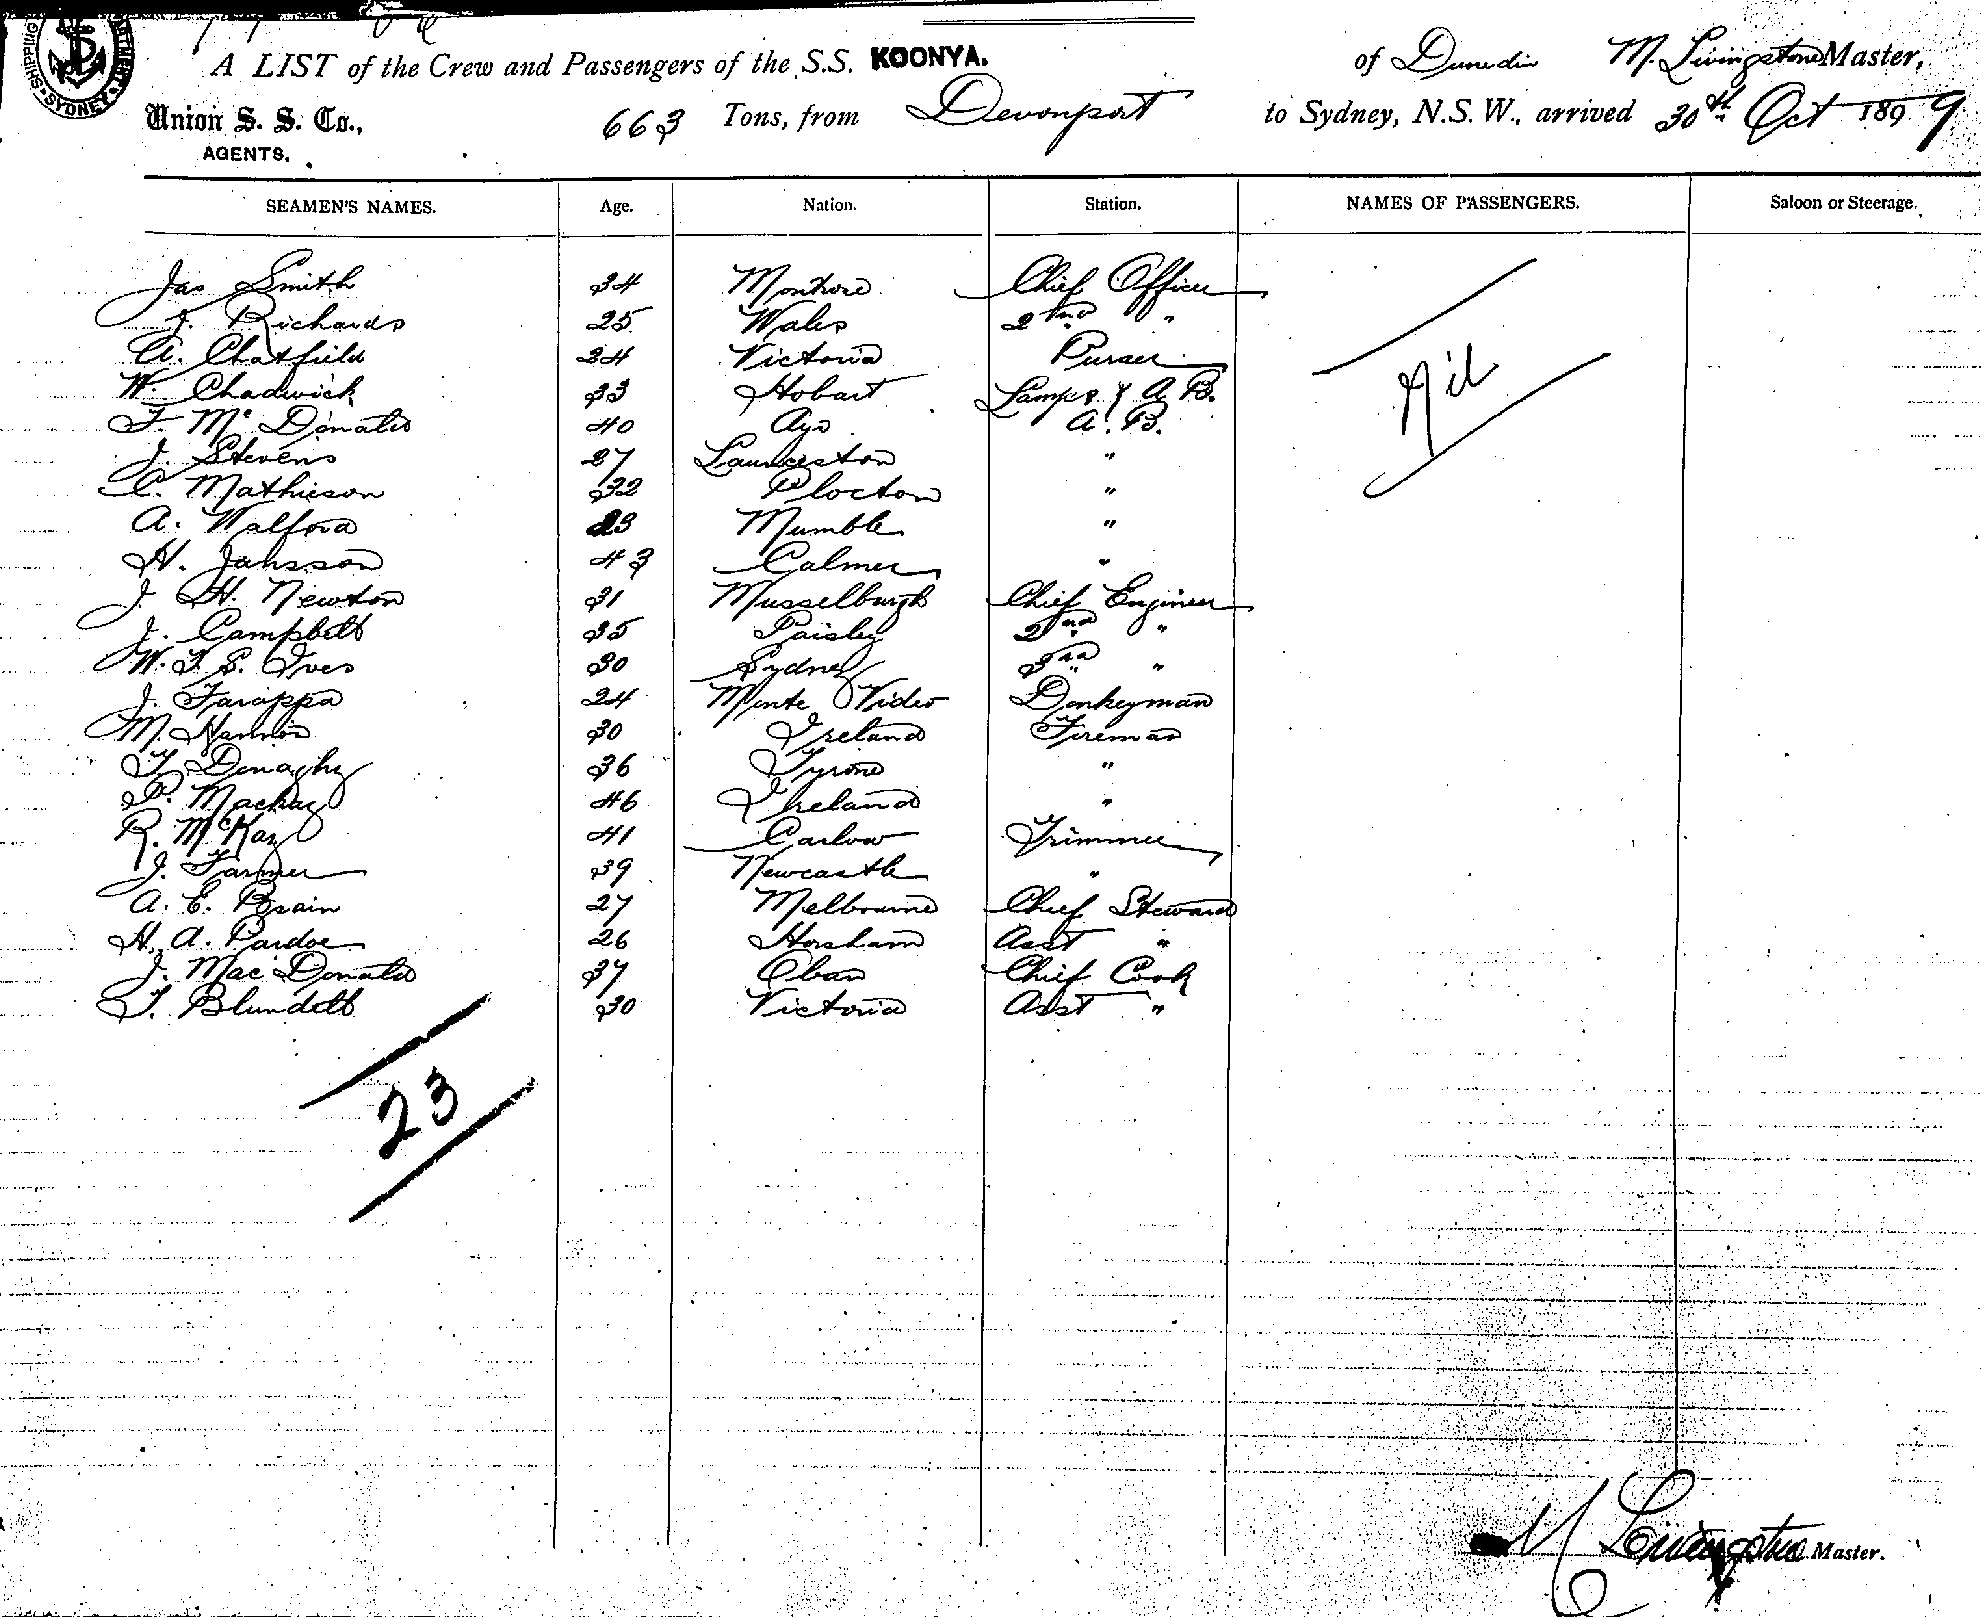 SHIPPING SYDNEY
A LIST of the Crew and Passengers of the S.S. KOONYA. of Dunedin M. Livingstone Master,
Union S. S. Co., 663 Tons, from Devonport to Sydney, N.S.W., arrived 30th Oct 1899
AGENTS.
SEAMEN'S NAMES. Age. Nation. Station. NAMES OF PASSENGERS. Saloon or Steerage.
Jas Smith 34 Montrose Chief Officer
J. Richards 25 Wales 2nd "
A. Chatfield 24 Victoria Purser
W. Chadwick 33 Hobart Lamps & A.B.
F. Mc Donald 40 Ayr A.B.
J. Stevens 27 Launceston "
C. Mathieson 32 Plocton "
A. Walford 23 Mumble "
H. Jansson 43 Calmer "
J. H. Newton 31 Musselburgh Chief Engineer
J. Campbell 35 Paisley 2nd "
W. T. S. Ives 30 Sydney 3rd "
J. Farappa 24 Monte Video Donkeyman
M. Hannon 30 Ireland Fireman
T. Donaghy 36 Tyrone "
P. Mackay 46 Ireland "
R. McKay 41 Carlow Trimmer
J. Farmer 39 Newcastle "
A. E. Brain 27 Melbourne Chief Steward
H. A. Pardoe 26 Horsham Asst "
J. Mac Donald 37 Oban Chief Cook
T. Blundell 30 Victoria Asst "
Nil
23
M Livingstone Master.